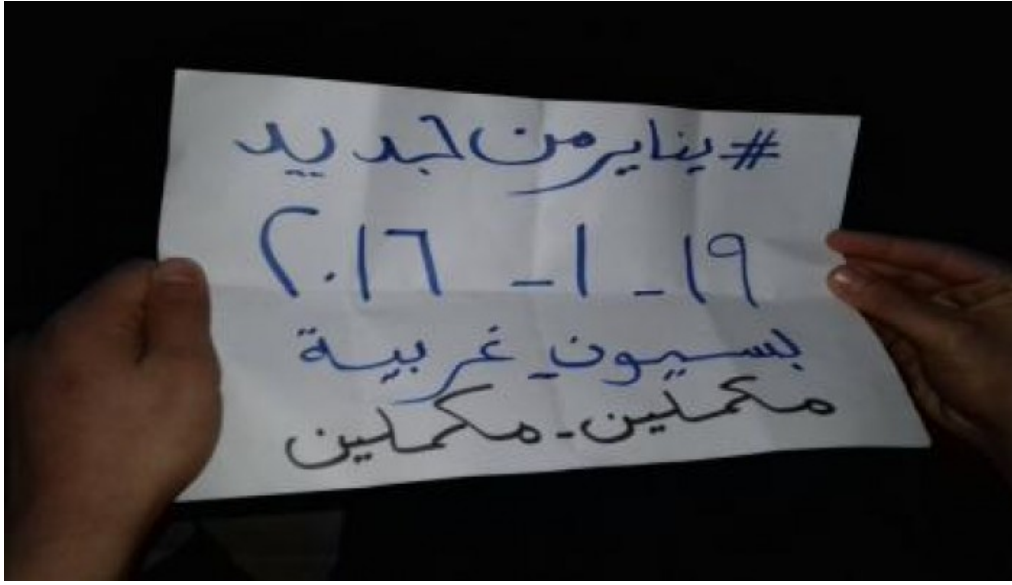 #يناير من جديد
١٩ - ١ - ٢٠١٦
بسيون غربية
مكملين - مكملين